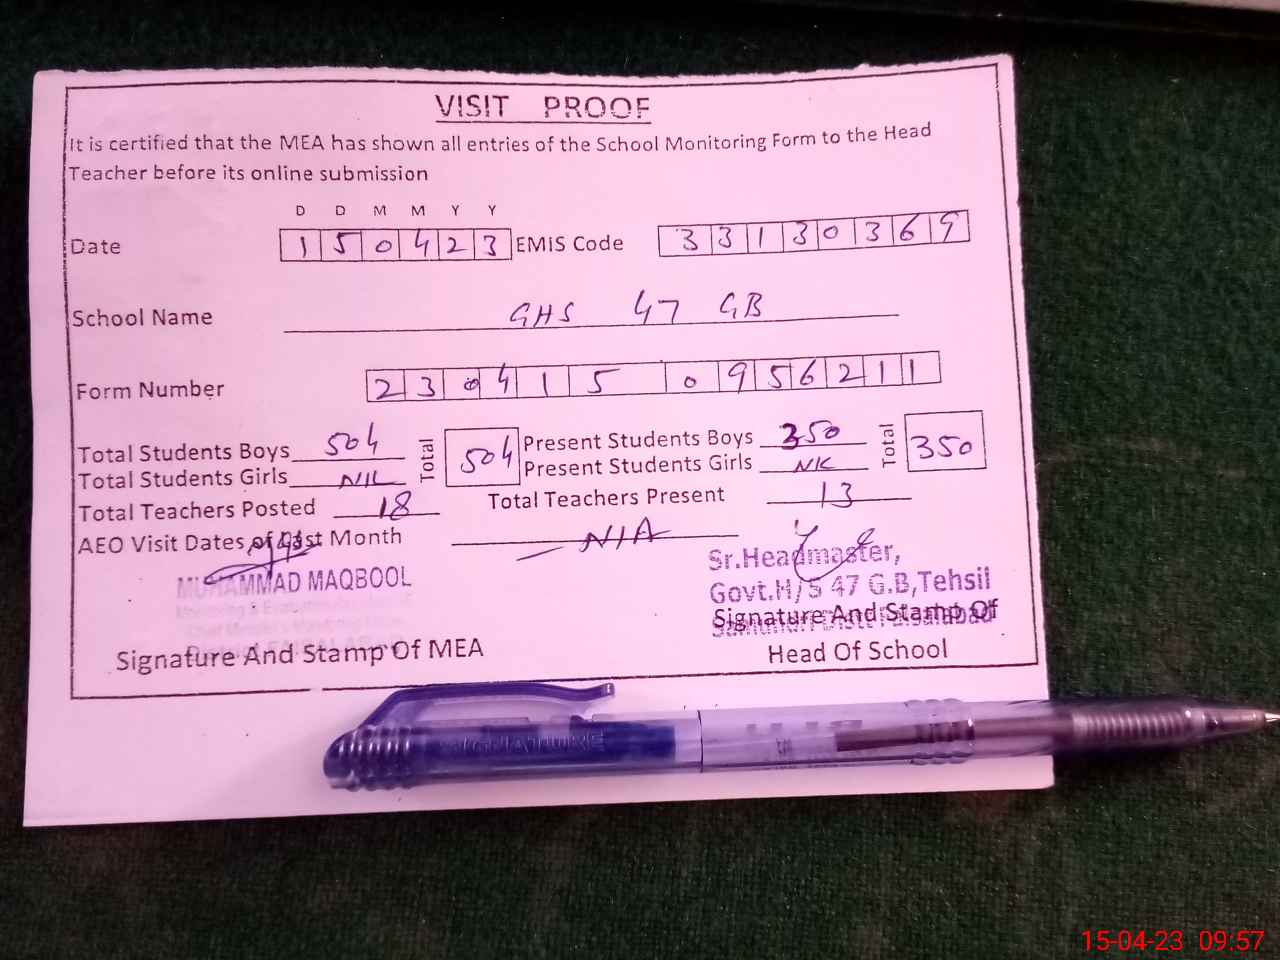 VISIT PROOF
It is certified that the MEA has shown all entries of the School Monitoring Form to the Head
Teacher before its online submission
D D M M Y Y
Date 1 5 0 4 2 3 EMIS Code 3 3 1 3 0 3 6 9
School Name GHS 47 GB
Form Number 2 3 0 4 1 5 0 9 5 6 2 1 1
Total Students Boys 504 Total 504 Present Students Boys 350 Total 350
Total Students Girls NIL Present Students Girls NIL
Total Teachers Posted 18 Total Teachers Present 13
AEO Visit Dates of Last Month N/A
MUHAMMAD MAQBOOL
Sr.Headmaster,
Govt.H/S 47 G.B,Tehsil
Signature And Stamp Of MEA
Signature And Stamp Of
Head Of School
SIGNATURE
15-04-23 09:57